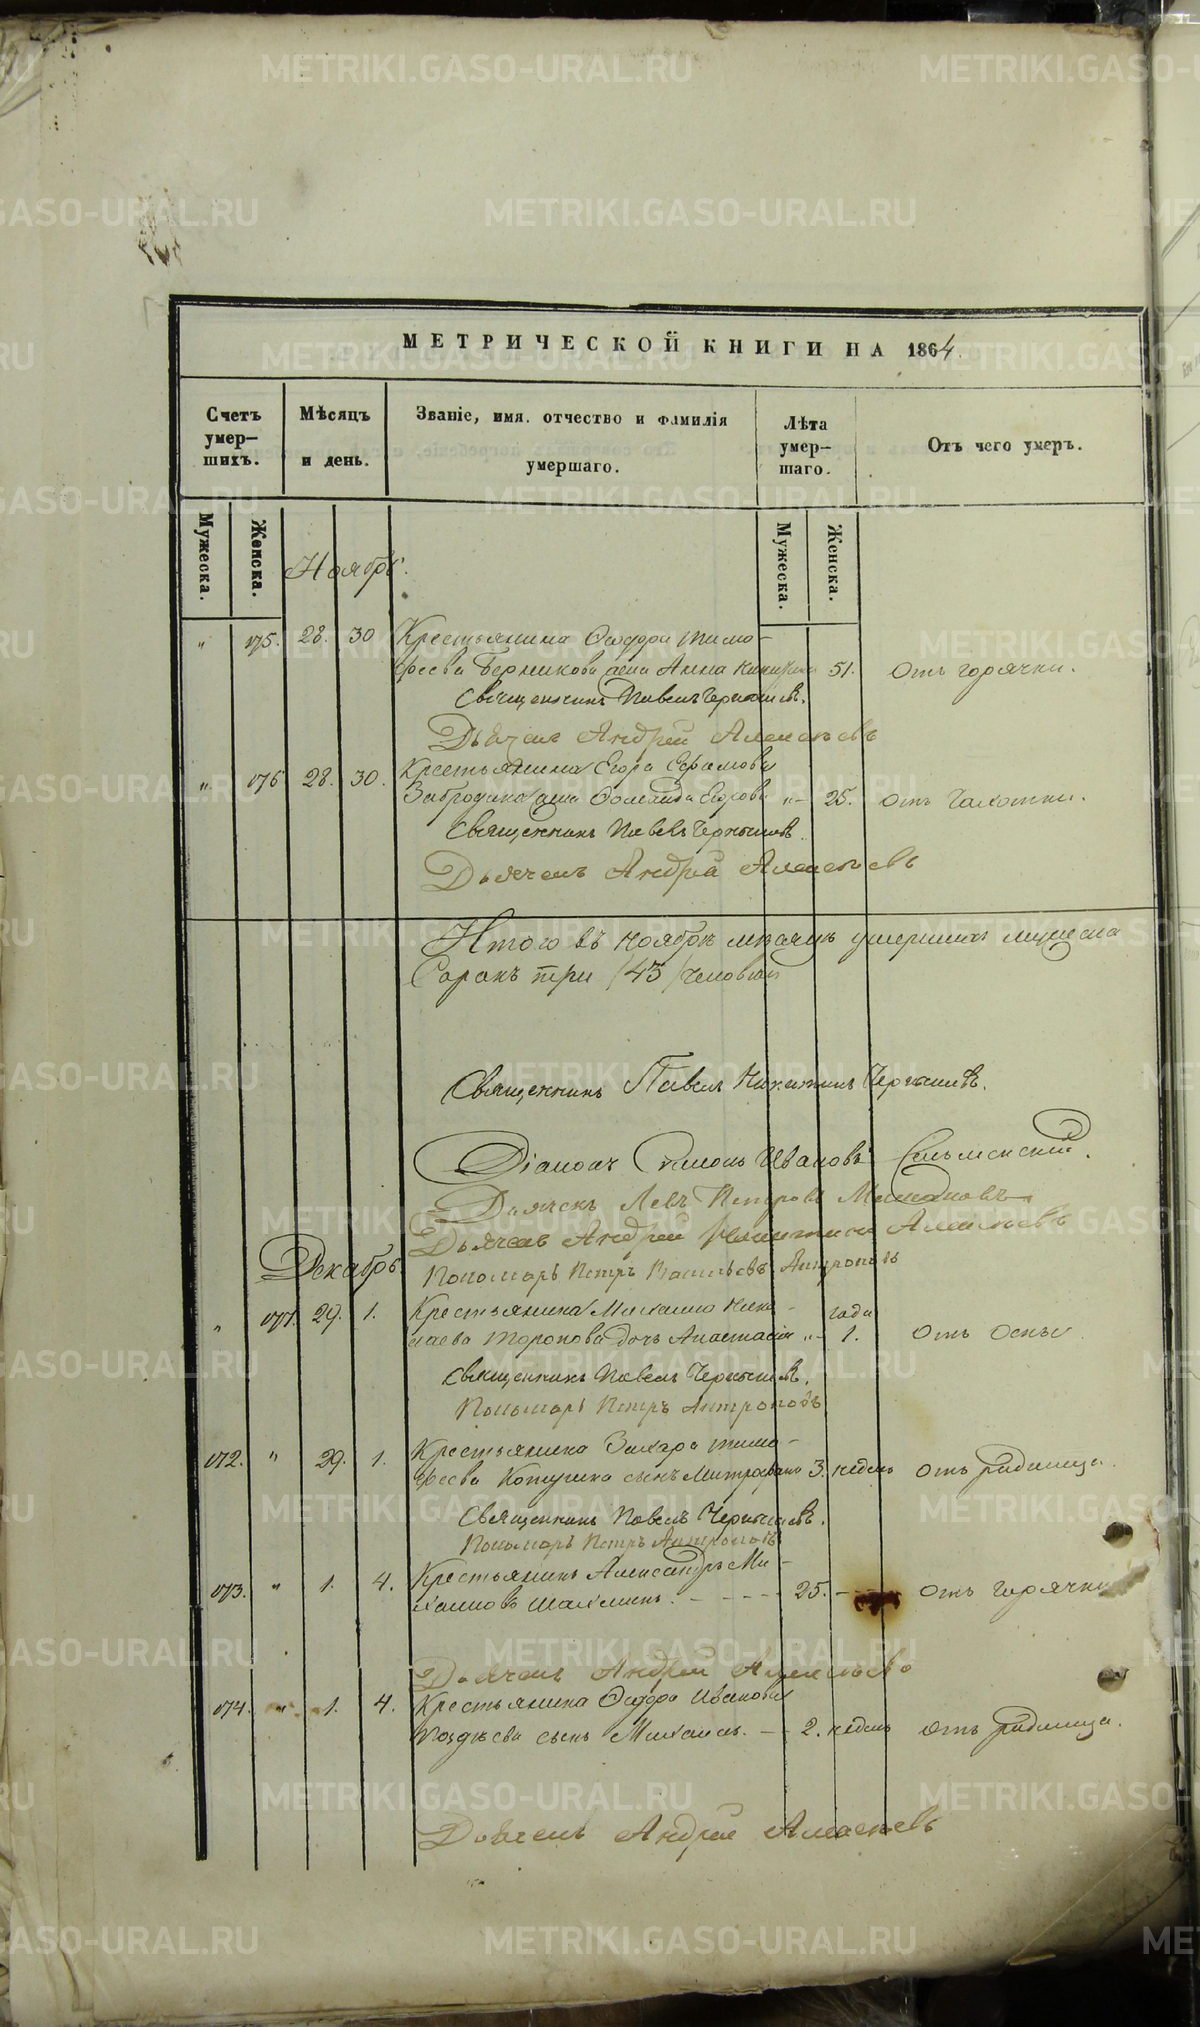 МЕТРИЧЕСКОЙ КНИГИ НА 1864.
Счетъ умер-шихъ.
Мѣсяцъ и день.
Званіе, имя, отчество и фамилія умершаго.
Лѣта умер-шаго.
Отъ чего умеръ.
Мужеска.
Женска.
Мужеска.
Женска.
Ноябрь.
" 175. 28. 30 Крестьянина Ѳедора Тимо-
феева Берникова жена Анна 51. отъ горячки.
Священникъ Павелъ Чернышевъ.
Дьячекъ Андрей
" 176 28. 30. Крестьянина Егора Ефимова
жена Егорова "- 25. отъ чахотки.
Священникъ Павелъ Чернышевъ.
Дьячекъ Андрей
Итого въ ноябрѣ мѣсяцѣ умершихъ мужеска
Сорокъ три /43/ человѣкъ
Священникъ Павелъ Никитинъ Чернышевъ.
Діаконъ Симонъ Ивановъ
Дьячекъ Левъ Петровъ
Дьячекъ Андрей
Декабрь
Пономарь Петръ Васильевъ Антроповъ
" 171. 29. 1. Крестьянина Михаила Нико- года
лаева Торопова дочь Анастасія "- 1. отъ оспы
Священникъ Павелъ Чернышевъ.
Пономарь Петръ Антроповъ
172. " 29. 1. Крестьянина Захара Тимо-
феева сынъ Митрофанъ 3. недѣль отъ родимца.
Священникъ Павелъ Чернышевъ.
Пономарь Петръ Антроповъ
173. " 1. 4. Крестьянинъ Александръ Ми-
хаиловъ 25. отъ горячки
Дьячекъ Андрей
174. " 1. 4. Крестьянина Ѳедора Иванова
Поздѣева сынъ Михаилъ. 2. недѣль отъ родимца.
Дьячекъ Андрей
METRIKI.GASO-URAL.RU